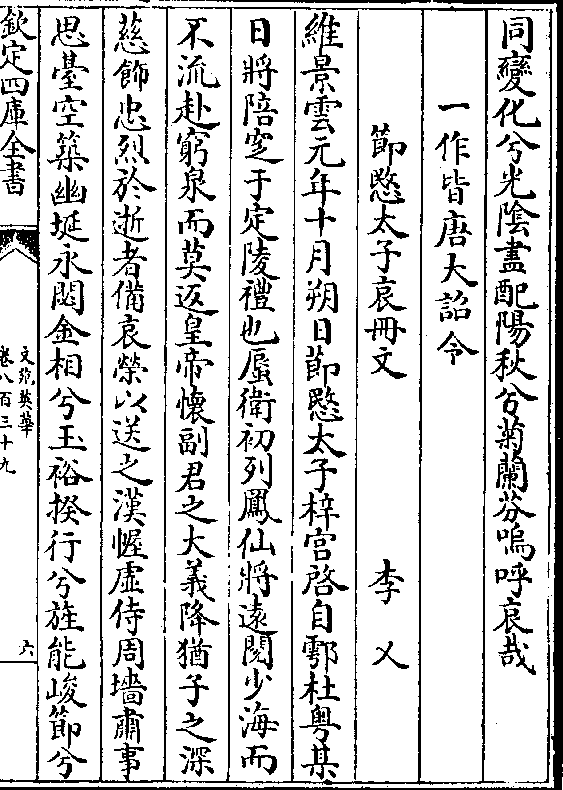 同變化兮光陰盡配陽秋兮菊蘭芬嗚呼哀哉
一作皆唐大詔令
節愍太子哀冊文
李乂
維景雲元年十月朔日節愍太子梓宮啓自鄠杜粤某
日將陪窆于定陵禮也蜃衛初列鳳仙將遠閱少海而
不流赴窮泉而莫返皇帝懷副君之大義降猶子之深
慈飾忠烈於逝者備哀榮以送之漢幄虛侍周墻肅事
思臺空築幽埏永閟金相兮玉裕揆行兮旌能峻節兮
欽定四庫全書
文苑英華
卷八百三十九
六